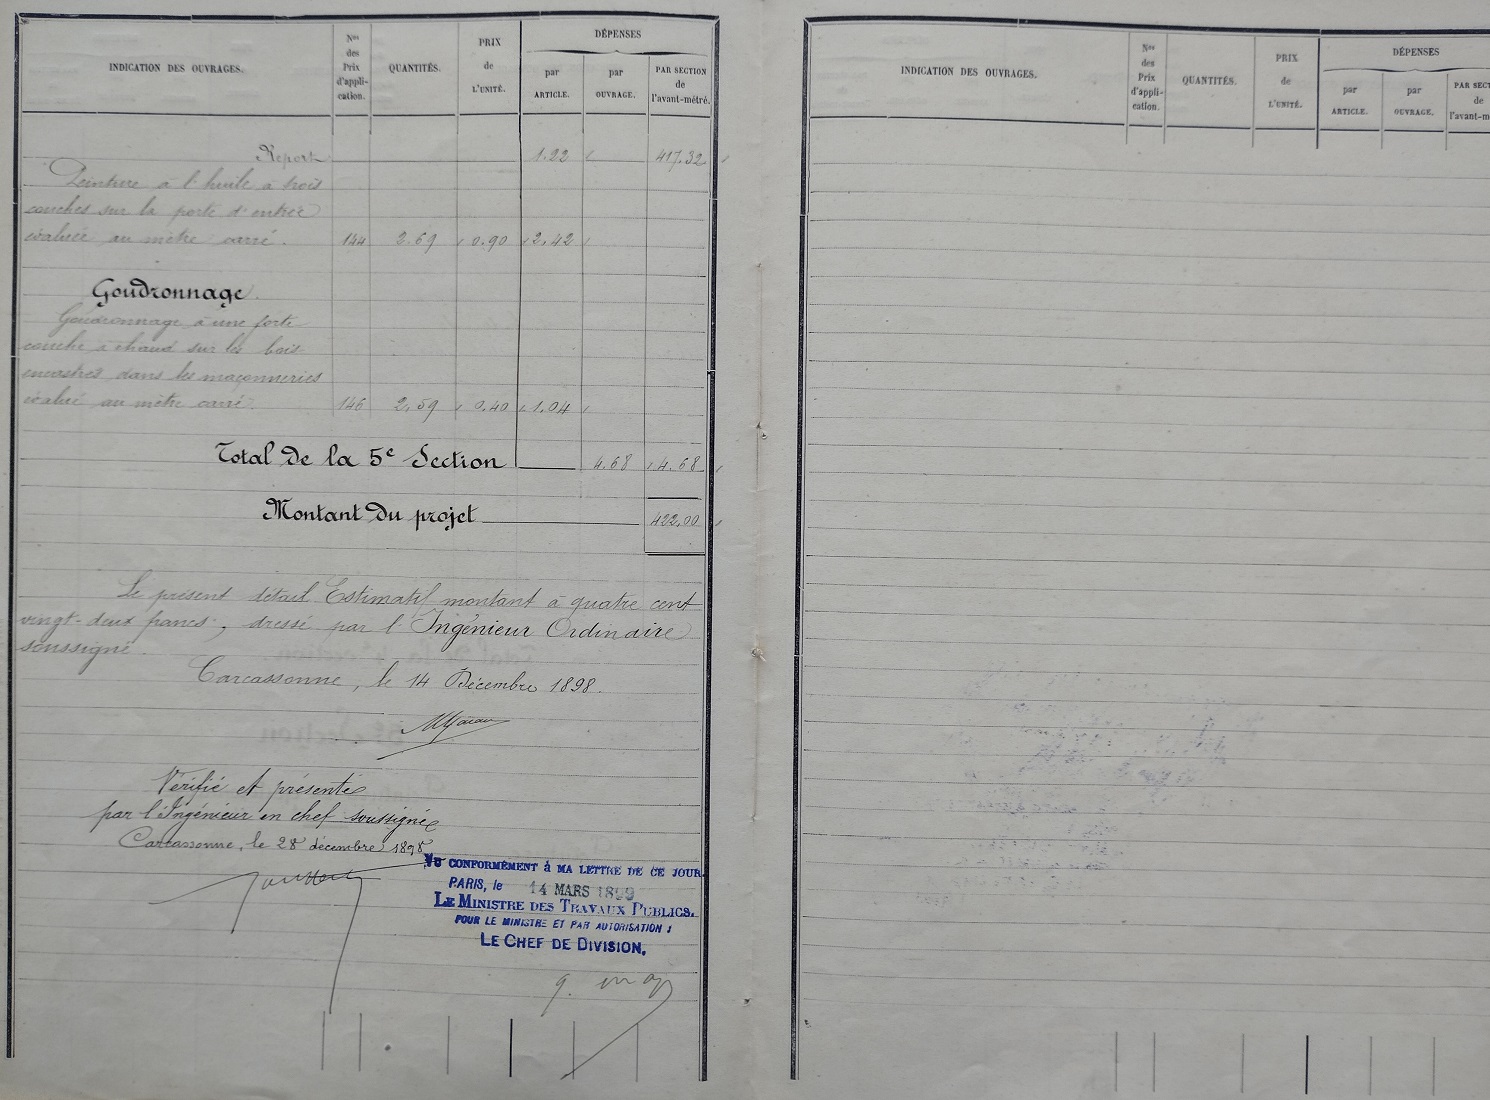 INDICATION DES OUVRAGES.
Nos des Prix d'application.
QUANTITÉS.
PRIX de L'UNITÉ.
DÉPENSES
par ARTICLE.
par OUVRAGE.
PAR SECTION de l'avant-métré.
Report 1.22 417.32
Peinture à l'huile à trois
couches sur la porte d'entrée
évaluée au mètre carré. 144 2.69 0.90 2.42
Goudronnage
Goudronnage à une forte
couche à chaud sur les bois
encastrés dans les maçonneries
évalué au mètre carré. 146 2,59 0.40 1.04
Total de la 5e Section 4.68 4.68
Montant du projet 422,00
Le présent détail Estimatif montant à quatre cent
vingt-deux francs, dressé par l'Ingénieur Ordinaire
soussigné.
Carcassonne, le 14 Décembre 1898.
Vérifié et présenté
par l'Ingénieur en chef soussigné
Carcassonne, le 28 décembre 1898
VU CONFORMÉMENT à MA LETTRE DE CE JOUR
PARIS, le 14 MARS 1899
LE MINISTRE DES TRAVAUX PUBLICS.
POUR LE MINISTRE ET PAR AUTORISATION :
LE CHEF DE DIVISION,
INDICATION DES OUVRAGES.
Nos des Prix d'application.
QUANTITÉS.
PRIX de L'UNITÉ.
DÉPENSES
par ARTICLE.
par OUVRAGE.
PAR SECT
de
l'avant-m